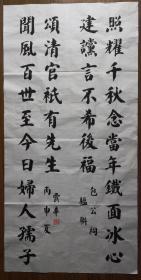 照耀千秋念當年鐵面冰心
建讜言不希後福
包公祠
楹聯
頌清官祇有先生
丙申夏
聞風百世至今日婦人孺子